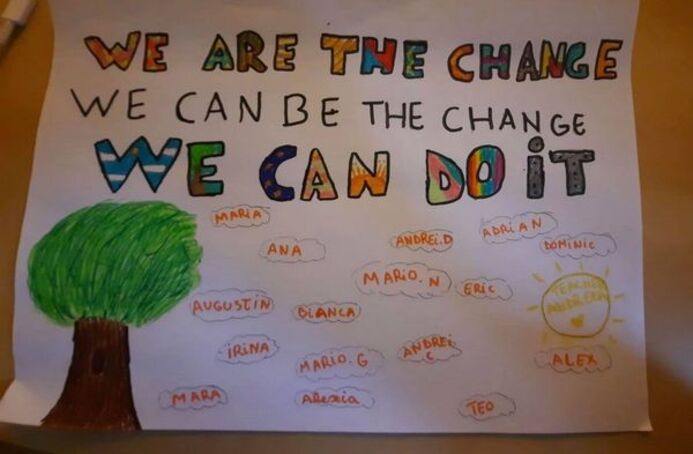 WE ARE THE CHANGE
WE CAN BE THE CHANGE
WE CAN DO iT
MARiA
ANA
ANDREi.D
ADRiAN
DOMiNiC
MARiO.N
ERiC
TEACHER
ANDREEA
AUGUSTiN
BiANCA
iRiNA
MARiO.G
ANDREi
C
ALEX
MARA
Alexia
TEO